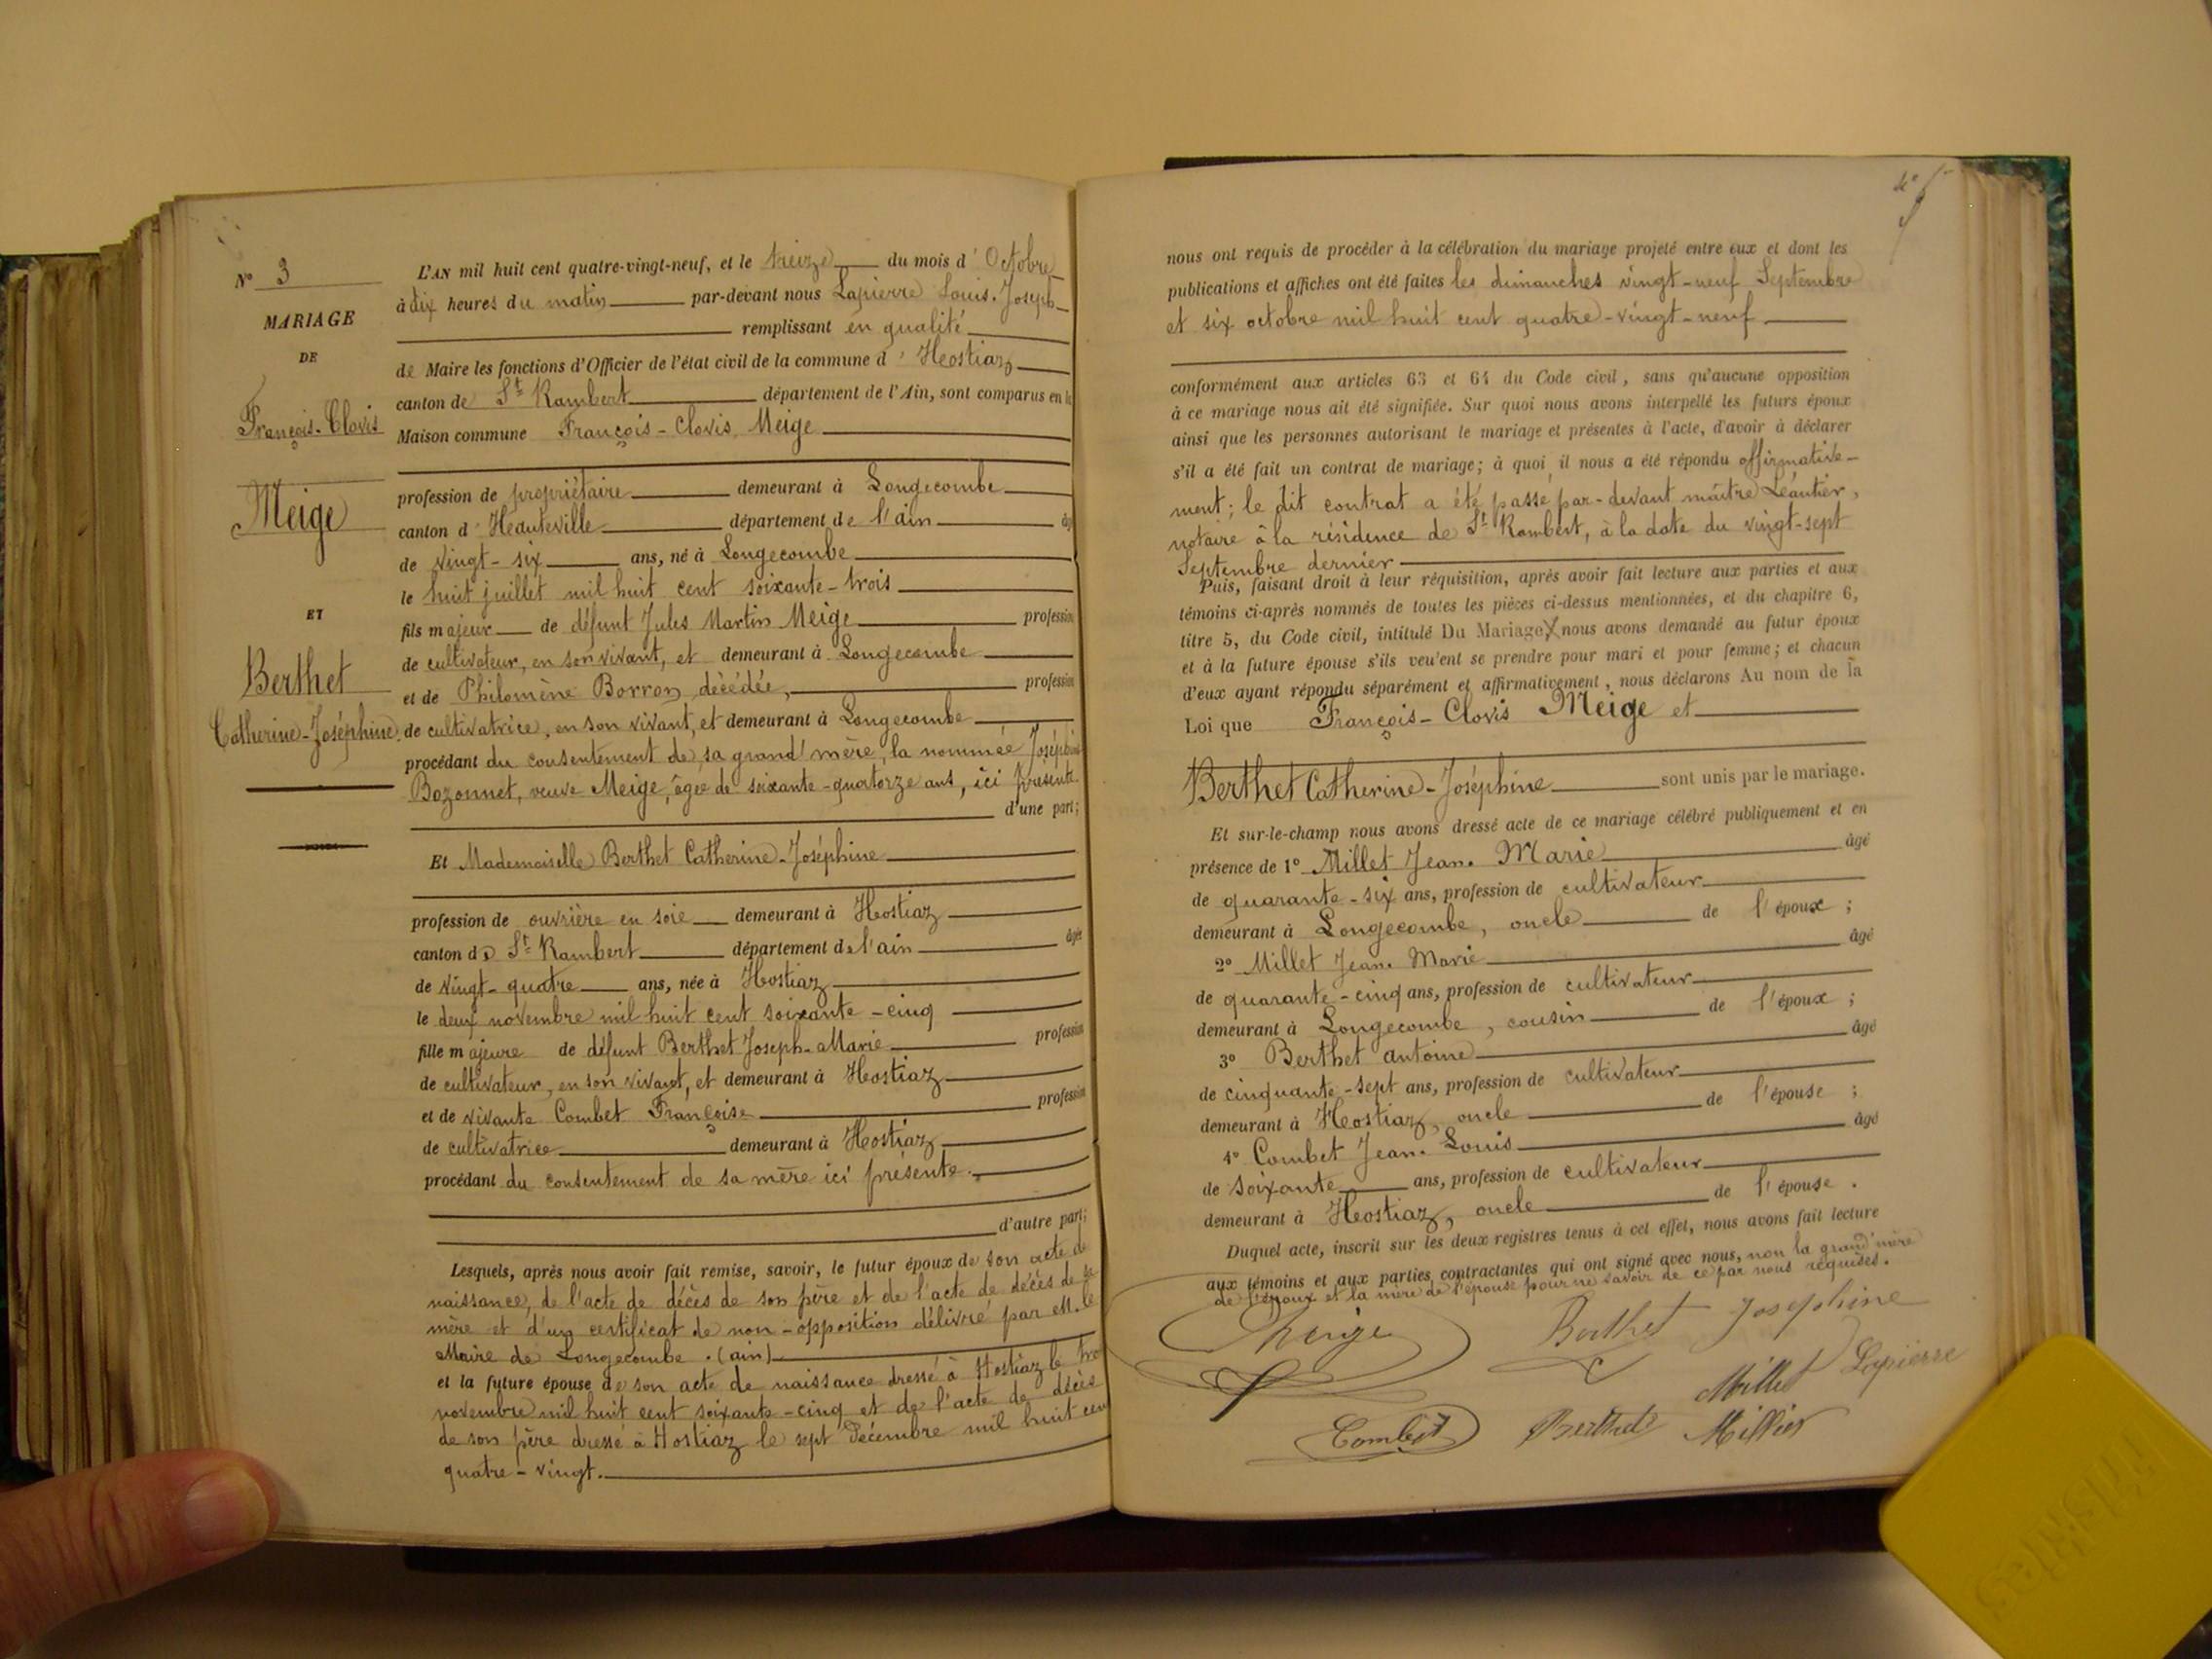 N° 3
MARIAGE
DE
François-Clovis
Meige
ET
Berthet
Catherine-Joséphine.
L'AN mil huit cent quatre-vingt-neuf, et le treize du mois d'Octobre
à dix heures du matin par-devant nous Lapierre Louis-Joseph
remplissant en qualité
de Maire les fonctions d'Officier de l'état civil de la commune d'Hostiaz
canton de St Rambert département de l'Ain, sont comparus en la
Maison commune François-Clovis Meige
profession de propriétaire demeurant à Longecombe
canton d'Hauteville département de l'ain âg
de vingt-six ans, né à Longecombe
le huit juillet mil huit cent soixante-trois
fils majeur de défunt Jules Martin Meige profession
de cultivateur, en son vivant, et demeurant à Longecombe
et de Philomène Borron décédée, profession
de cultivatrice, en son vivant, et demeurant à Longecombe
procédant du consentement de sa grand'mère, la nommée Joséphine
Bozonnet, veuve Meige, âgée de soixante-quatorze ans, ici présente
d'une part;
Et Mademoiselle Berthet Catherine-Joséphine
profession de ouvrière en soie demeurant à Hostiaz
canton de St Rambert département de l'ain âgée
de vingt-quatre ans, née à Hostiaz
le deux novembre mil huit cent soixante-cinq
fille majeure de défunt Berthet Joseph-Marie profession
de cultivateur, en son vivant, et demeurant à Hostiaz
et de vivante Combet Françoise profession
de cultivatrice demeurant à Hostiaz
procédant du consentement de sa mère ici présente.
d'autre part;
Lesquels, après nous avoir fait remise, savoir, le futur époux de son acte de
naissance, de l'acte de décès de son père et de l'acte de décès de sa
mère et d'un certificat de non-opposition délivré par M. le
Maire de Longecombe. (ain)
et la future épouse de son acte de naissance dressé à Hostiaz le tro
novembre mil huit cent soixante-cinq et de l'acte de décès
de son père dressé à Hostiaz le sept Décembre mil huit cent
quatre-vingt.
nous ont requis de procéder à la célébration du mariage projeté entre eux et dont les
publications et affiches ont été faites les dimanches vingt-neuf Septembre
et six octobre mil huit cent quatre-vingt-neuf
conformément aux articles 63 et 64 du Code civil, sans qu'aucune opposition
à ce mariage nous ait été signifiée. Sur quoi nous avons interpellé les futurs époux
ainsi que les personnes autorisant le mariage et présentes à l'acte, d'avoir à déclarer
s'il a été fait un contrat de mariage; à quoi il nous a été répondu affirmative-
ment; le dit contrat a été passé par-devant maître Léautier,
notaire à la résidence de St Rambert, à la date du vingt-sept
Septembre dernier
Puis, faisant droit à leur réquisition, après avoir fait lecture aux parties et aux
témoins ci-après nommés de toutes les pièces ci-dessus mentionnées, et du chapitre 6,
titre 5, du Code civil, intitulé Du Mariage, nous avons demandé au futur époux
et à la future épouse s'ils veulent se prendre pour mari et pour femme; et chacun
d'eux ayant répondu séparément et affirmativement, nous déclarons Au nom de la
Loi que François-Clovis Meige et
Berthet Catherine-Joséphine sont unis par le mariage.
Et sur-le-champ nous avons dressé acte de ce mariage célébré publiquement et en
présence de 1° Millet Jean-Marie âgé
de quarante-six ans, profession de cultivateur
demeurant à Longecombe, oncle de l'époux;
2° Millet Jean-Marie âgé
de quarante-cinq ans, profession de cultivateur
demeurant à Longecombe, cousin de l'époux;
3° Berthet antoine âgé
de cinquante-sept ans, profession de cultivateur
demeurant à Hostiaz, oncle de l'épouse;
4° Combet Jean-Louis âgé
de soixante ans, profession de cultivateur
demeurant à Hostiaz, oncle de l'épouse.
Duquel acte, inscrit sur les deux registres tenus à cet effet, nous avons fait lecture
aux témoins et aux parties contractantes qui ont signé avec nous, non la grand'mère
de l'époux et la mère de l'épouse pour ne savoir de ce par nous requises.
Meige Berthet Joséphine
Millet Lapierre
Combet Berthet Millet